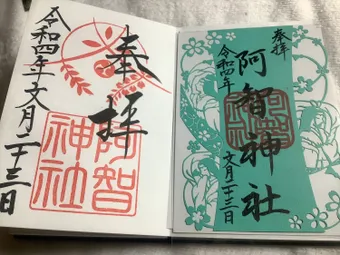 奉拝
令和四年文月二十三日
阿智
神社
奉拝
令和四年
阿智神社
文月二十三日